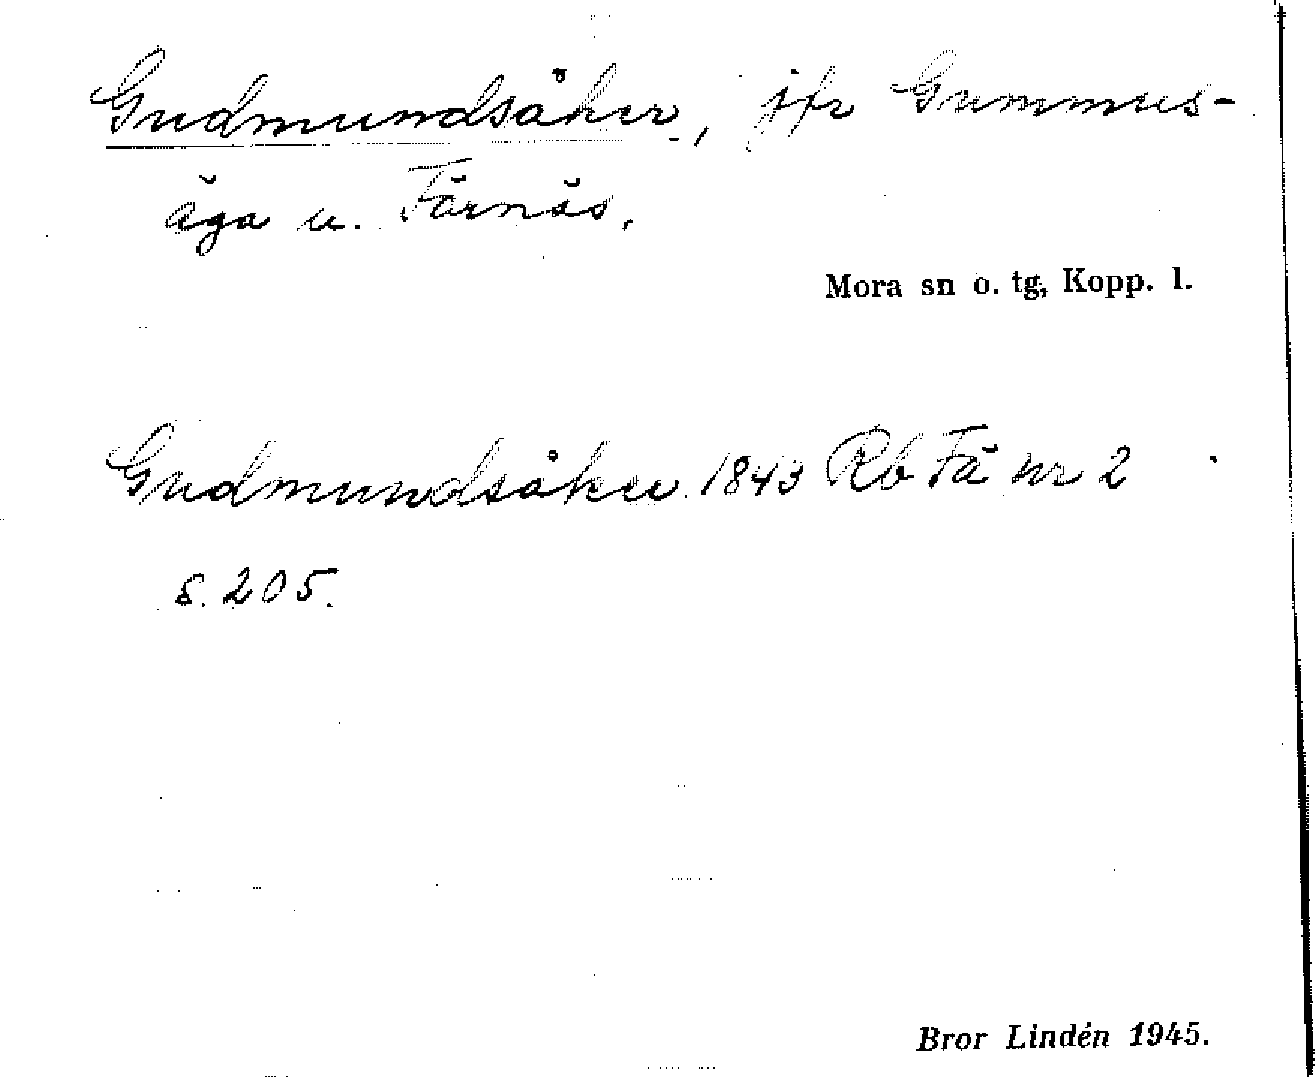 Gudmundsåker, jfr Gummus-
äga u. Färnäs.
Mora sn o. tg, Kopp. l.
Gudmundsåker 1843 Rb Fä nr 2
s. 205.
Bror Lindén 1945.